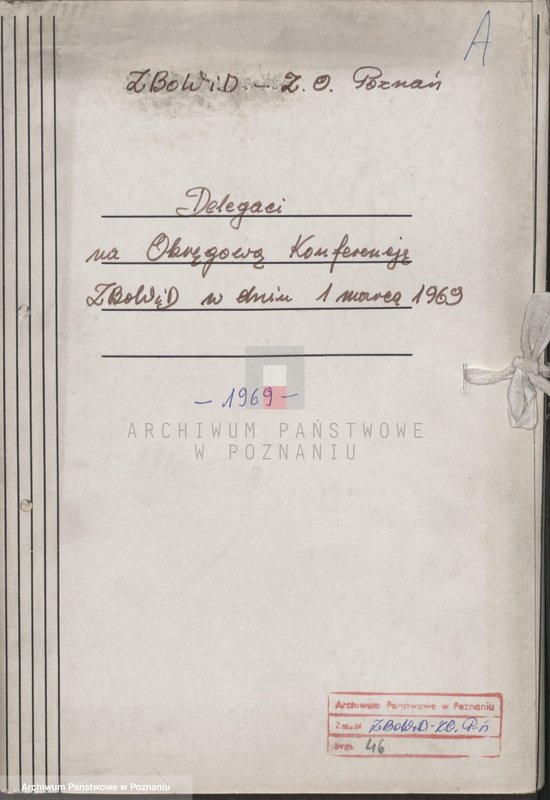 A
ZBoWiD - Z.O. Poznań
Delegaci
na Okręgową Konferencję
ZBoWiD w dniu 1 marca 1969
- 1969 -
ARCHIWUM PAŃSTWOWE
W POZNANIU
Archiwum Państwowe w Poznaniu
Zespół ZBoWiD-ZO. P-ń
Sygn. 46
Archiwum Państwowe w Poznaniu